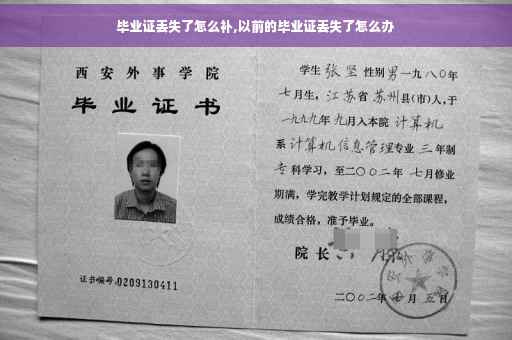 毕业证丢失了怎么补,以前的毕业证丢失了怎么办
西安外事学院
毕业证书
证书编号:0209130411
学生 张坚 性别 男 一九八〇年
七月生, 江苏省 苏州县(市)人,于
一九九九年 九月入本院 计算机
系 计算机信息管理专业 三 年制
专科学习,至二〇〇二年 七月修业
期满,学完教学计划规定的全部课程,
成绩合格,准予毕业。
院长
二〇〇二年 月 五日